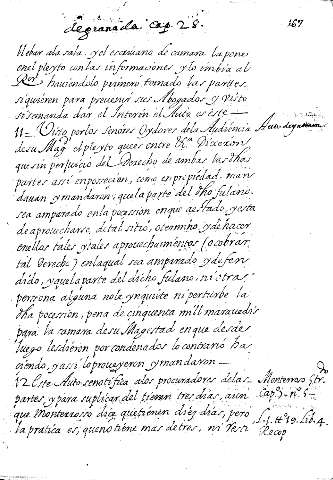 de granada. Cap. 28.
167
llebar ala sala. y el escrivano de camara la pone
en el pleyto con las informaciones, y lo imbia al
Ror. haviendolo primero tomado las partes
si quieren para prevenir sus Abogados, y visto
si se manda dar el Interin el Auto es este
11 Visto por los Señores Oydores de la Audiencia
de su Magd. el pleyto que es entre &a. Dixeron
que sin perjuicio del Derecho de ambas las dhas
partes assi en posecion, como en propiedad. man
davan y mandaron, que la parte del dho fulano.
sea amparado en la pocession en que a estado, y esta
de aprovecharse, de tal sitio, o termino, y de hacer
en ellos tales y tales aprovechamientos (o cobrar
tal Derecho) en la qual sea amparado y defen
dido, y que la parte del dicho fulano, ni otras
persona alguna no le ynquite ni perturbe la
dha pocession, pena de cinquenta mill maravedis
para la camara de su Magistad en que desde
luego les dieron por condenados lo contrario ha
ciendo, y assi lo proveyeron y mandaron
12 Este Auto se notifica a los procuradores de las
partes y para suplicar del pieran tres dias, aun
que Monterrosso diga que tienen diez dias, pero
la pratica es, que no tiene mas de tres, ni resti
Monterroso
Cap. n. 5
L. j. tto. 19. Lib. 4.
Recop